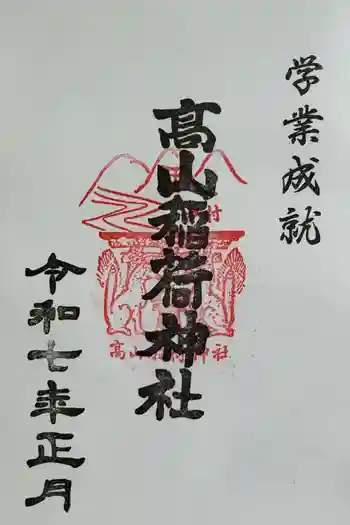 学業成就
高山稲荷神社
令和七年正月
高山稲荷神社